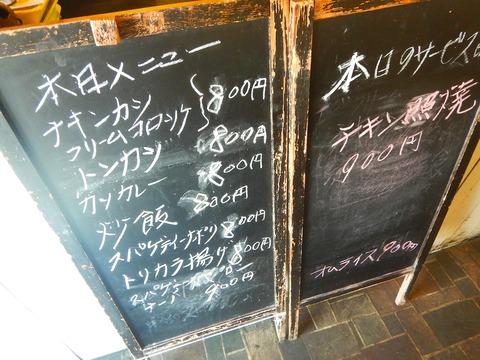 本日メニュー
チキンカツ
クリームコロッケ 800円
トンカツ 800円
カツカレー 800円
炒飯 800円
スパゲティーナポリ 800円
トリカラ揚げ 800円
スパゲティー
900円
本日のサービス
チキン照焼
900円
オムライス 900円